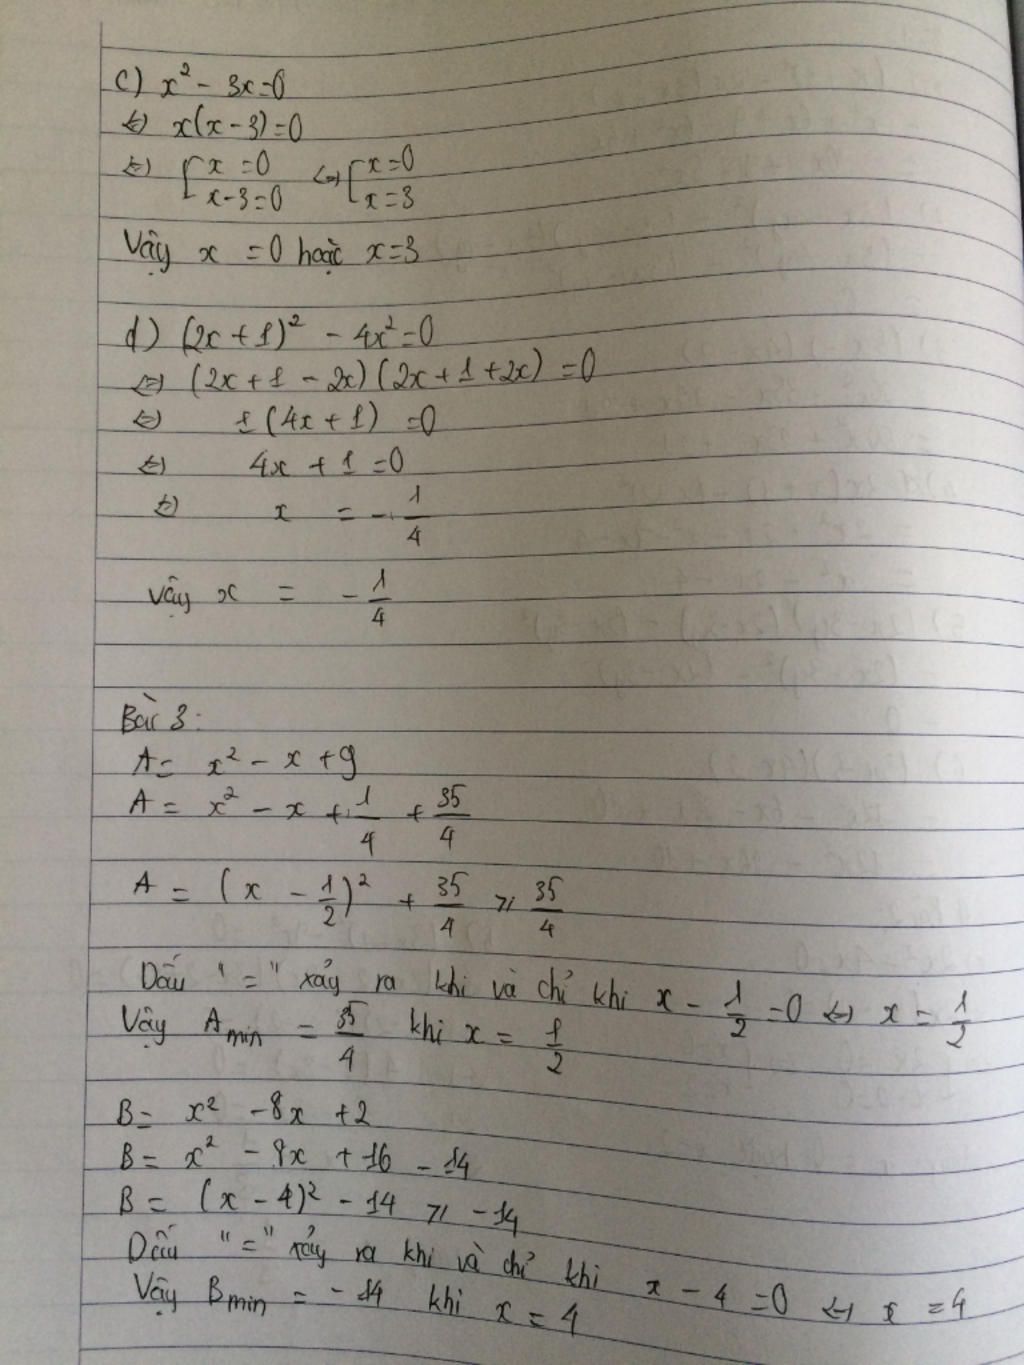 c) x² - 3x = 0
⇔ x(x - 3) = 0
⇔ [ x = 0 ⇔ [ x = 0
x - 3 = 0 x = 3
Vậy x = 0 hoặc x = 3
d) (2x + 1)² - 4x² = 0
⇔ (2x + 1 - 2x)(2x + 1 + 2x) = 0
⇔ 1(4x + 1) = 0
⇔ 4x + 1 = 0
⇔ x = - 1/4
Vậy x = - 1/4
Bài 3:
A = x² - x + 9
A = x² - x + 1/4 + 35/4
A = (x - 1/2)² + 35/4 ⩾ 35/4
Dấu "=" xảy ra khi và chỉ khi x - 1/2 = 0 ⇔ x = 1/2
Vậy A min = 35/4 khi x = 1/2
B = x² - 8x + 2
B = x² - 8x + 16 - 14
B = (x - 4)² - 14 ⩾ -14
Dấu "=" xảy ra khi và chỉ khi x - 4 = 0 ⇔ x = 4
Vậy B min = - 14 khi x = 4